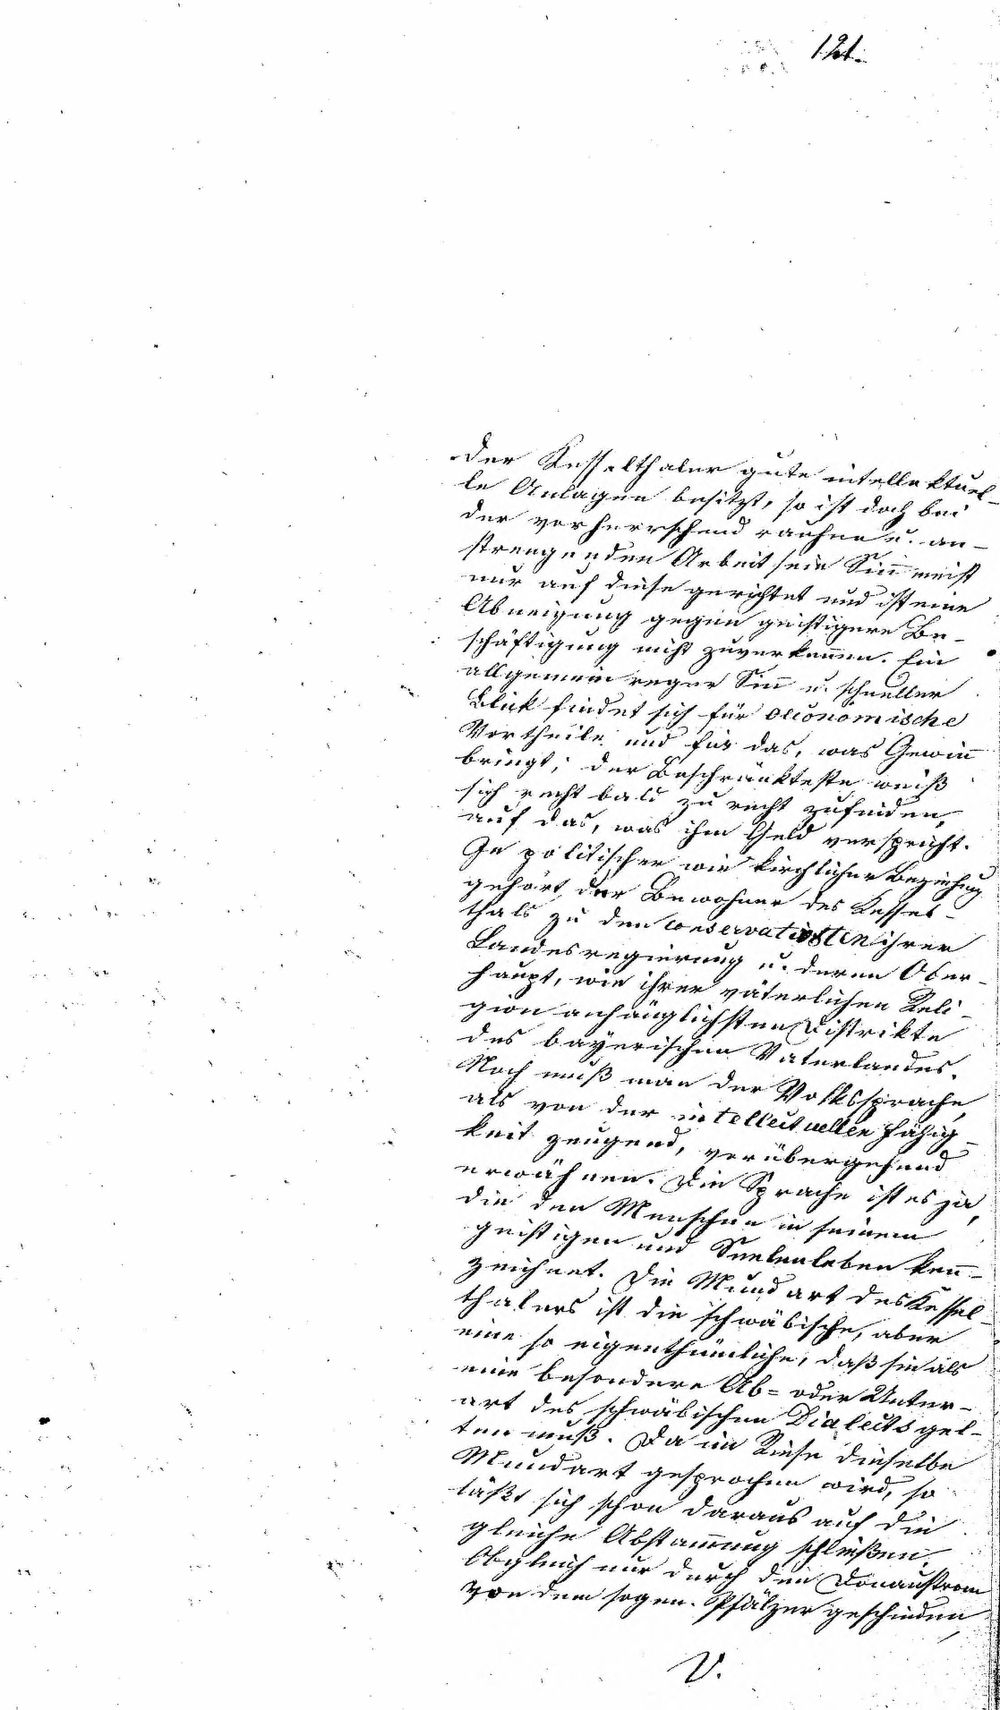 121.
der Kesselthaler gute intellektuel-
le Anlagen besitzt, so ist doch bei
der vorherrschend rauhen u. an-
strengenden Arbeit sein Siñ meist
nur auf diese gerichtet und ist eine
Abneigung gegen geistigere Be-
schäftigung nicht zuverkeñen. Ein
allgemein reger Siñ u. schneller
Blick findet sich für oeconomische
Vortheile und für das, was Gewiñ
bringt; der Beschränkteste weiß
sich recht bald zu recht zufinden,
auf das, was ihm Geld verspricht.
In politischer wie kirchlicher Beziehung
gehört der Bewohner des Kessel-
thals zu den conservativsten ihrer
Landesregierung u. deren Ober-
haupt, wie ihrer väterlichen Reli-
gion anhänglichsten Distrikte
des bayerischen Vaterlandes.
Noch muß man der Volkssprache,
als von der intellectuellen Fähig-
keit zeugend, vorübergehend
erwähnen. Die Sprache ist es ja,
die den Menschen in seinem
geistigen und Seelenleben keñ-
zeichnet. Die Mundart des Kessel-
thalers ist die schwäbische, aber
eine so eigenthümliche, daß sie als
eine besondere Ab- oder Unter-
art des schwäbischen Dialects gel-
ten muß. Da im Riese dieselbe
Mundart gesprochen wird, so
läßt sich schon daraus auf die
gleiche Abstam̃ung schließen.
Obgleich nur durch den Donaustrom
von dem sogen. Pfälzer geschieden,
V.